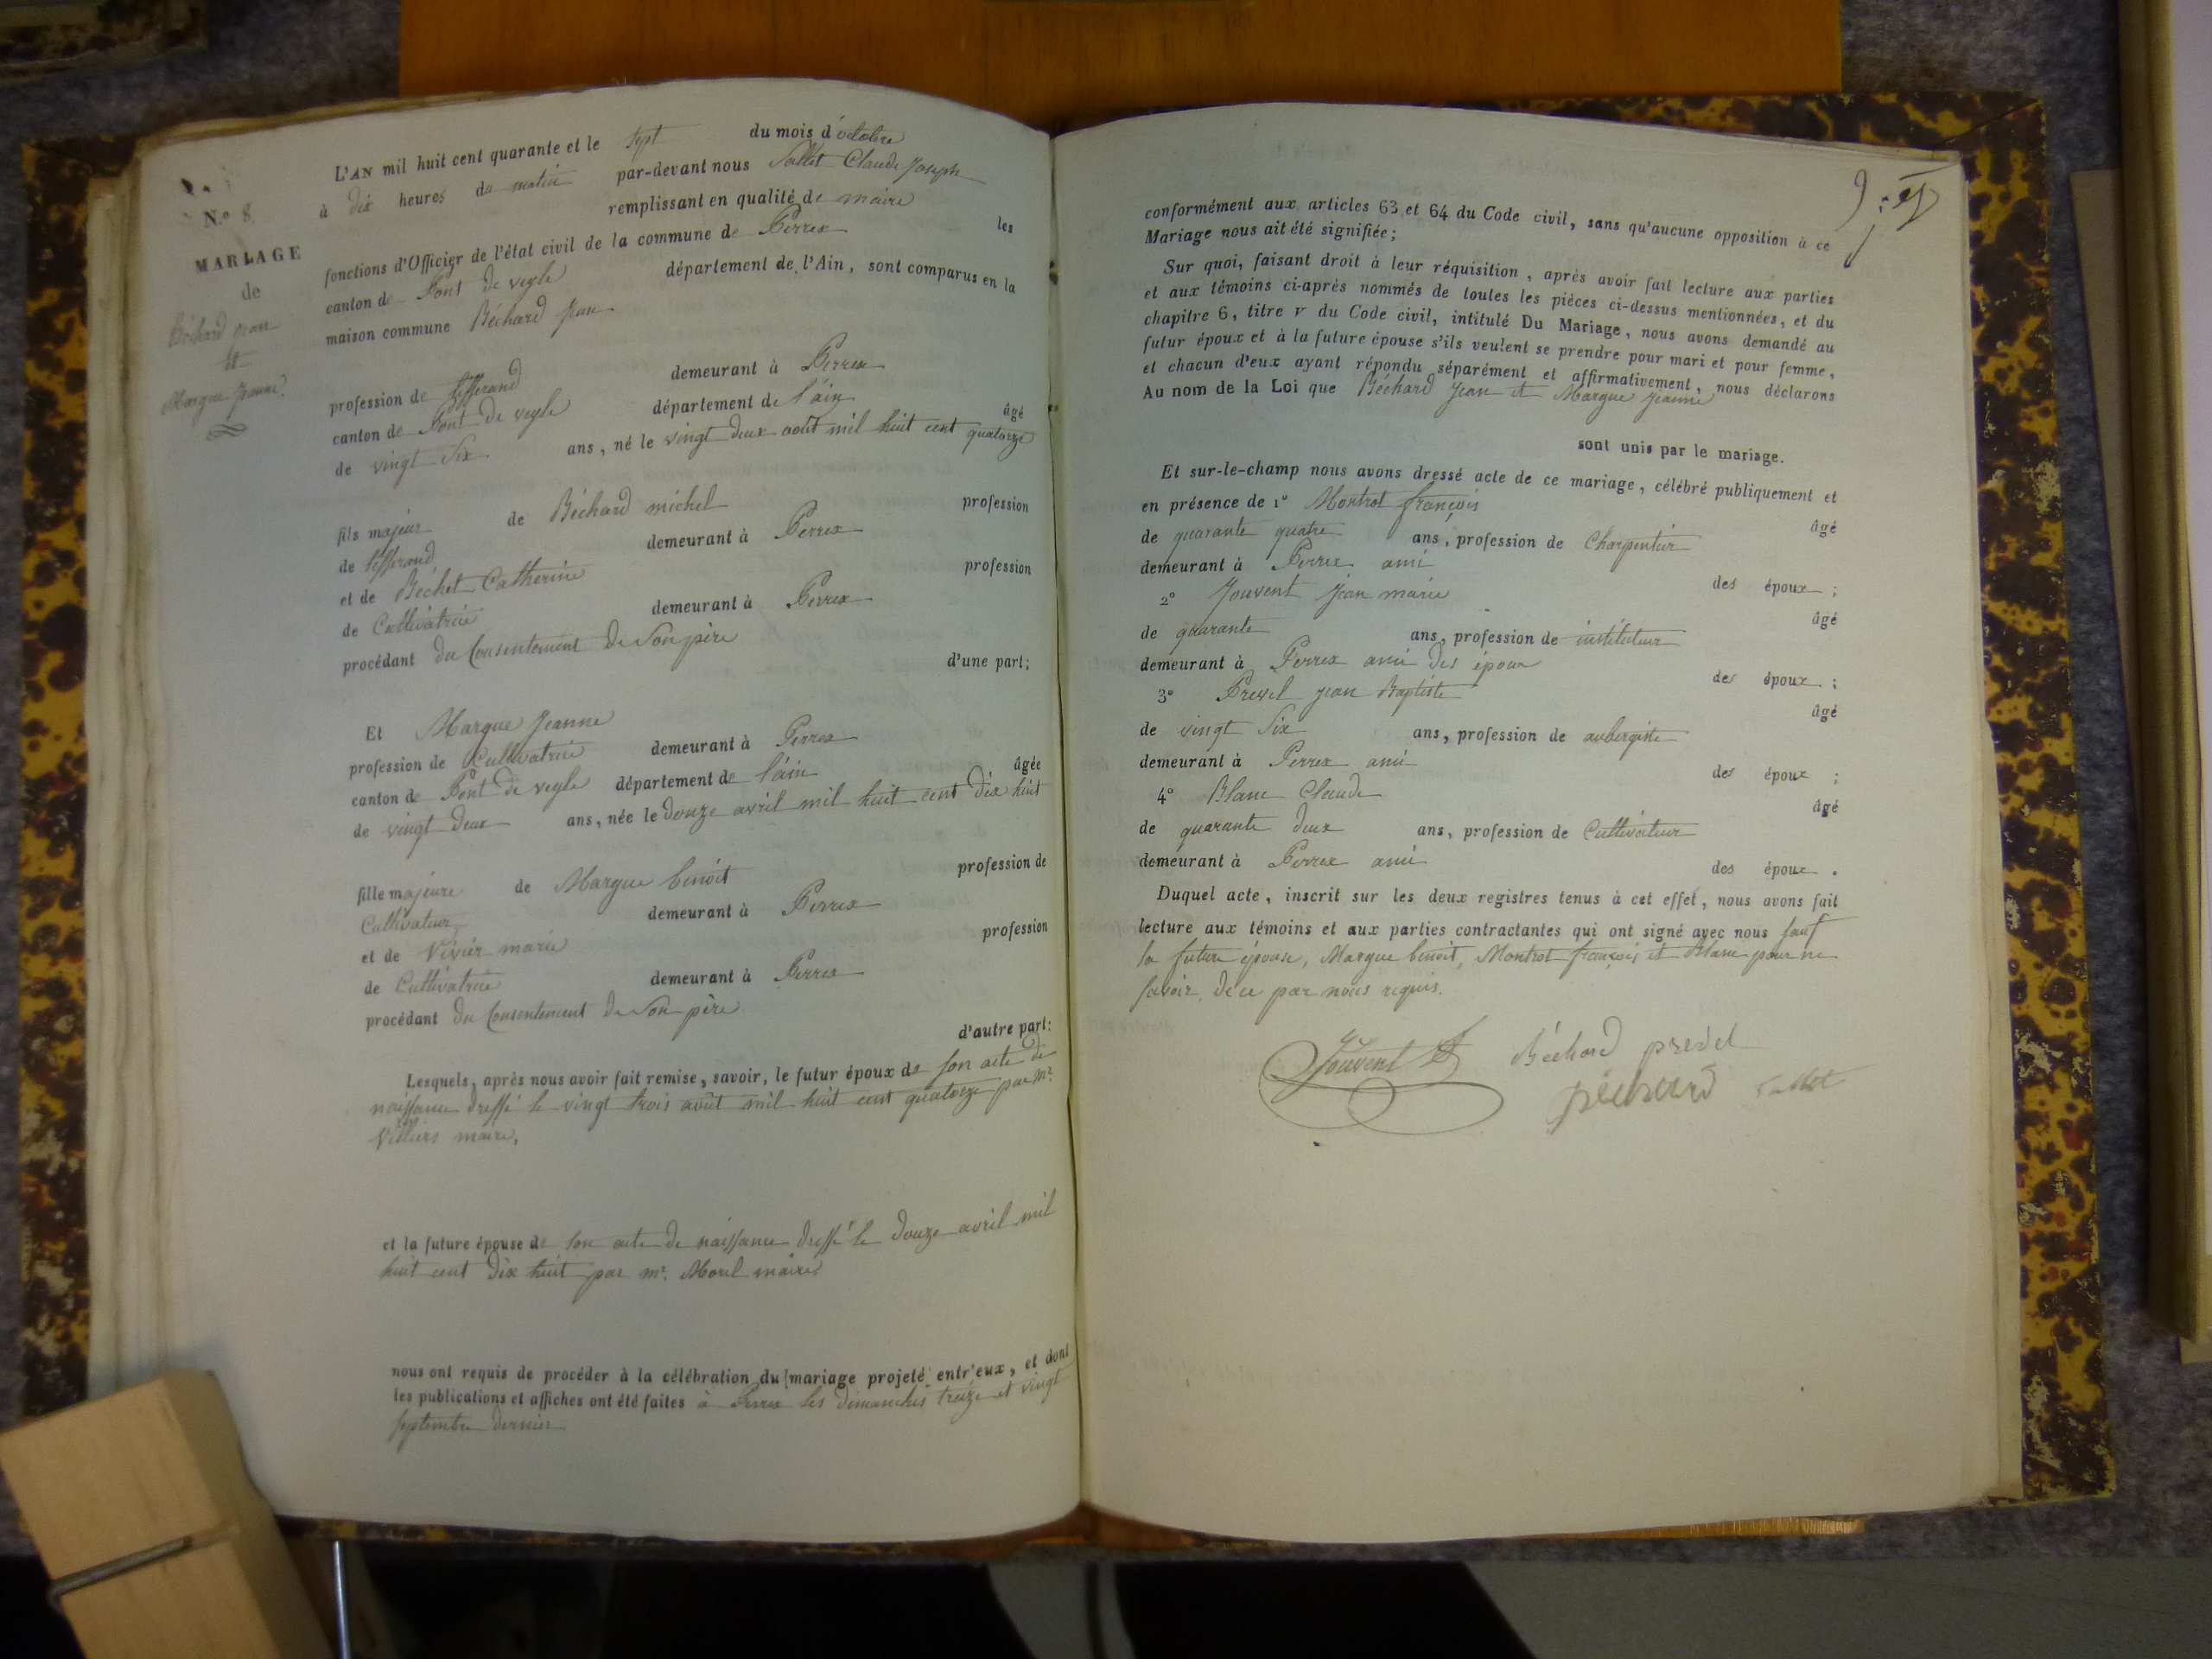 N.o 8.
MARIAGE
de
Béchard jean
et
Margue jeanne
L'AN mil huit cent quarante et le sept du mois d'octobre
à dix heures du matin par-devant nous Sallet Claude Joseph
remplissant en qualité de maire les
fonctions d'Officier de l'état civil de la commune de Perrex
canton de Pont de veyle département de l'Ain, sont comparus en la
maison commune Béchard jean
profession de tisserand demeurant à Perrex
canton de Pont de veyle département de l'ain âgé
de vingt Six ans, né le vingt deux août mil huit cent quatorze
fils majeur de Béchard michel profession
de tisserand demeurant à Perrex
et de Bechet Catherine profession
de Cultivatrice demeurant à Perrex
procédant du Consentement de Son père
d'une part;
Et Margue Jeanne
profession de Cultivatrice demeurant à Perrex
canton de Pont de veyle département de l'ain âgée
de vingt deux ans, née le douze avril mil huit cent dix huit
fille majeure de Margue benoit profession de
Cultivateur demeurant à Perrex
et de Vivier marie profession
de Cultivatrice demeurant à Perrex
procédant du Consentement de Son père
d'autre part:
Lesquels, après nous avoir fait remise, savoir, le futur époux de son acte de
naissance dressé le vingt trois août mil huit cent quatorze par mr.
Villiers maire,
et la future épouse de son acte de naissance dressé le douze avril mil
huit cent dix huit par mr. Morel maire
nous ont requis de procéder à la célébration du mariage projeté entr'eux, et dont
les publications et affiches ont été faites à Perrex les dimanches treize et vingt
septembre dernier
conformément aux articles 63 et 64 du Code civil, sans qu'aucune opposition à ce
Mariage nous ait été signifiée;
Sur quoi, faisant droit à leur réquisition, après avoir fait lecture aux parties
et aux témoins ci-après nommés de toutes les pièces ci-dessus mentionnées, et du
chapitre 6, titre v du Code civil, intitulé Du Mariage, nous avons demandé au
futur époux et à la future épouse s'ils veulent se prendre pour mari et pour femme,
et chacun d'eux ayant répondu séparément et affirmativement, nous déclarons
Au nom de la Loi que Béchard Jean et Margue jeanne
sont unis par le mariage.
Et sur-le-champ nous avons dressé acte de ce mariage, célébré publiquement et
en présence de 1º Montrot françois âgé
de quarante quatre ans, profession de Charpentier
demeurant à Perrex ami des époux;
2º Jouvent jean marie âgé
de quarante ans, profession de instituteur
demeurant à Perrex ami des époux des époux;
3º Prevel jean Baptiste âgé
de vingt Six ans, profession de aubergiste
demeurant à Perrex ami des époux;
4º Blanc Claude âgé
de quarante deux ans, profession de Cultivateur
demeurant à Perrex ami des époux.
Duquel acte, inscrit sur les deux registres tenus à cet effet, nous avons fait
lecture aux témoins et aux parties contractantes qui ont signé avec nous sauf
la future épouse, Margue benoit, Montrot françois et Blanc pour ne
savoir, de ce par nous requis.
Jouvent Béchard prevel
péchard Sallet